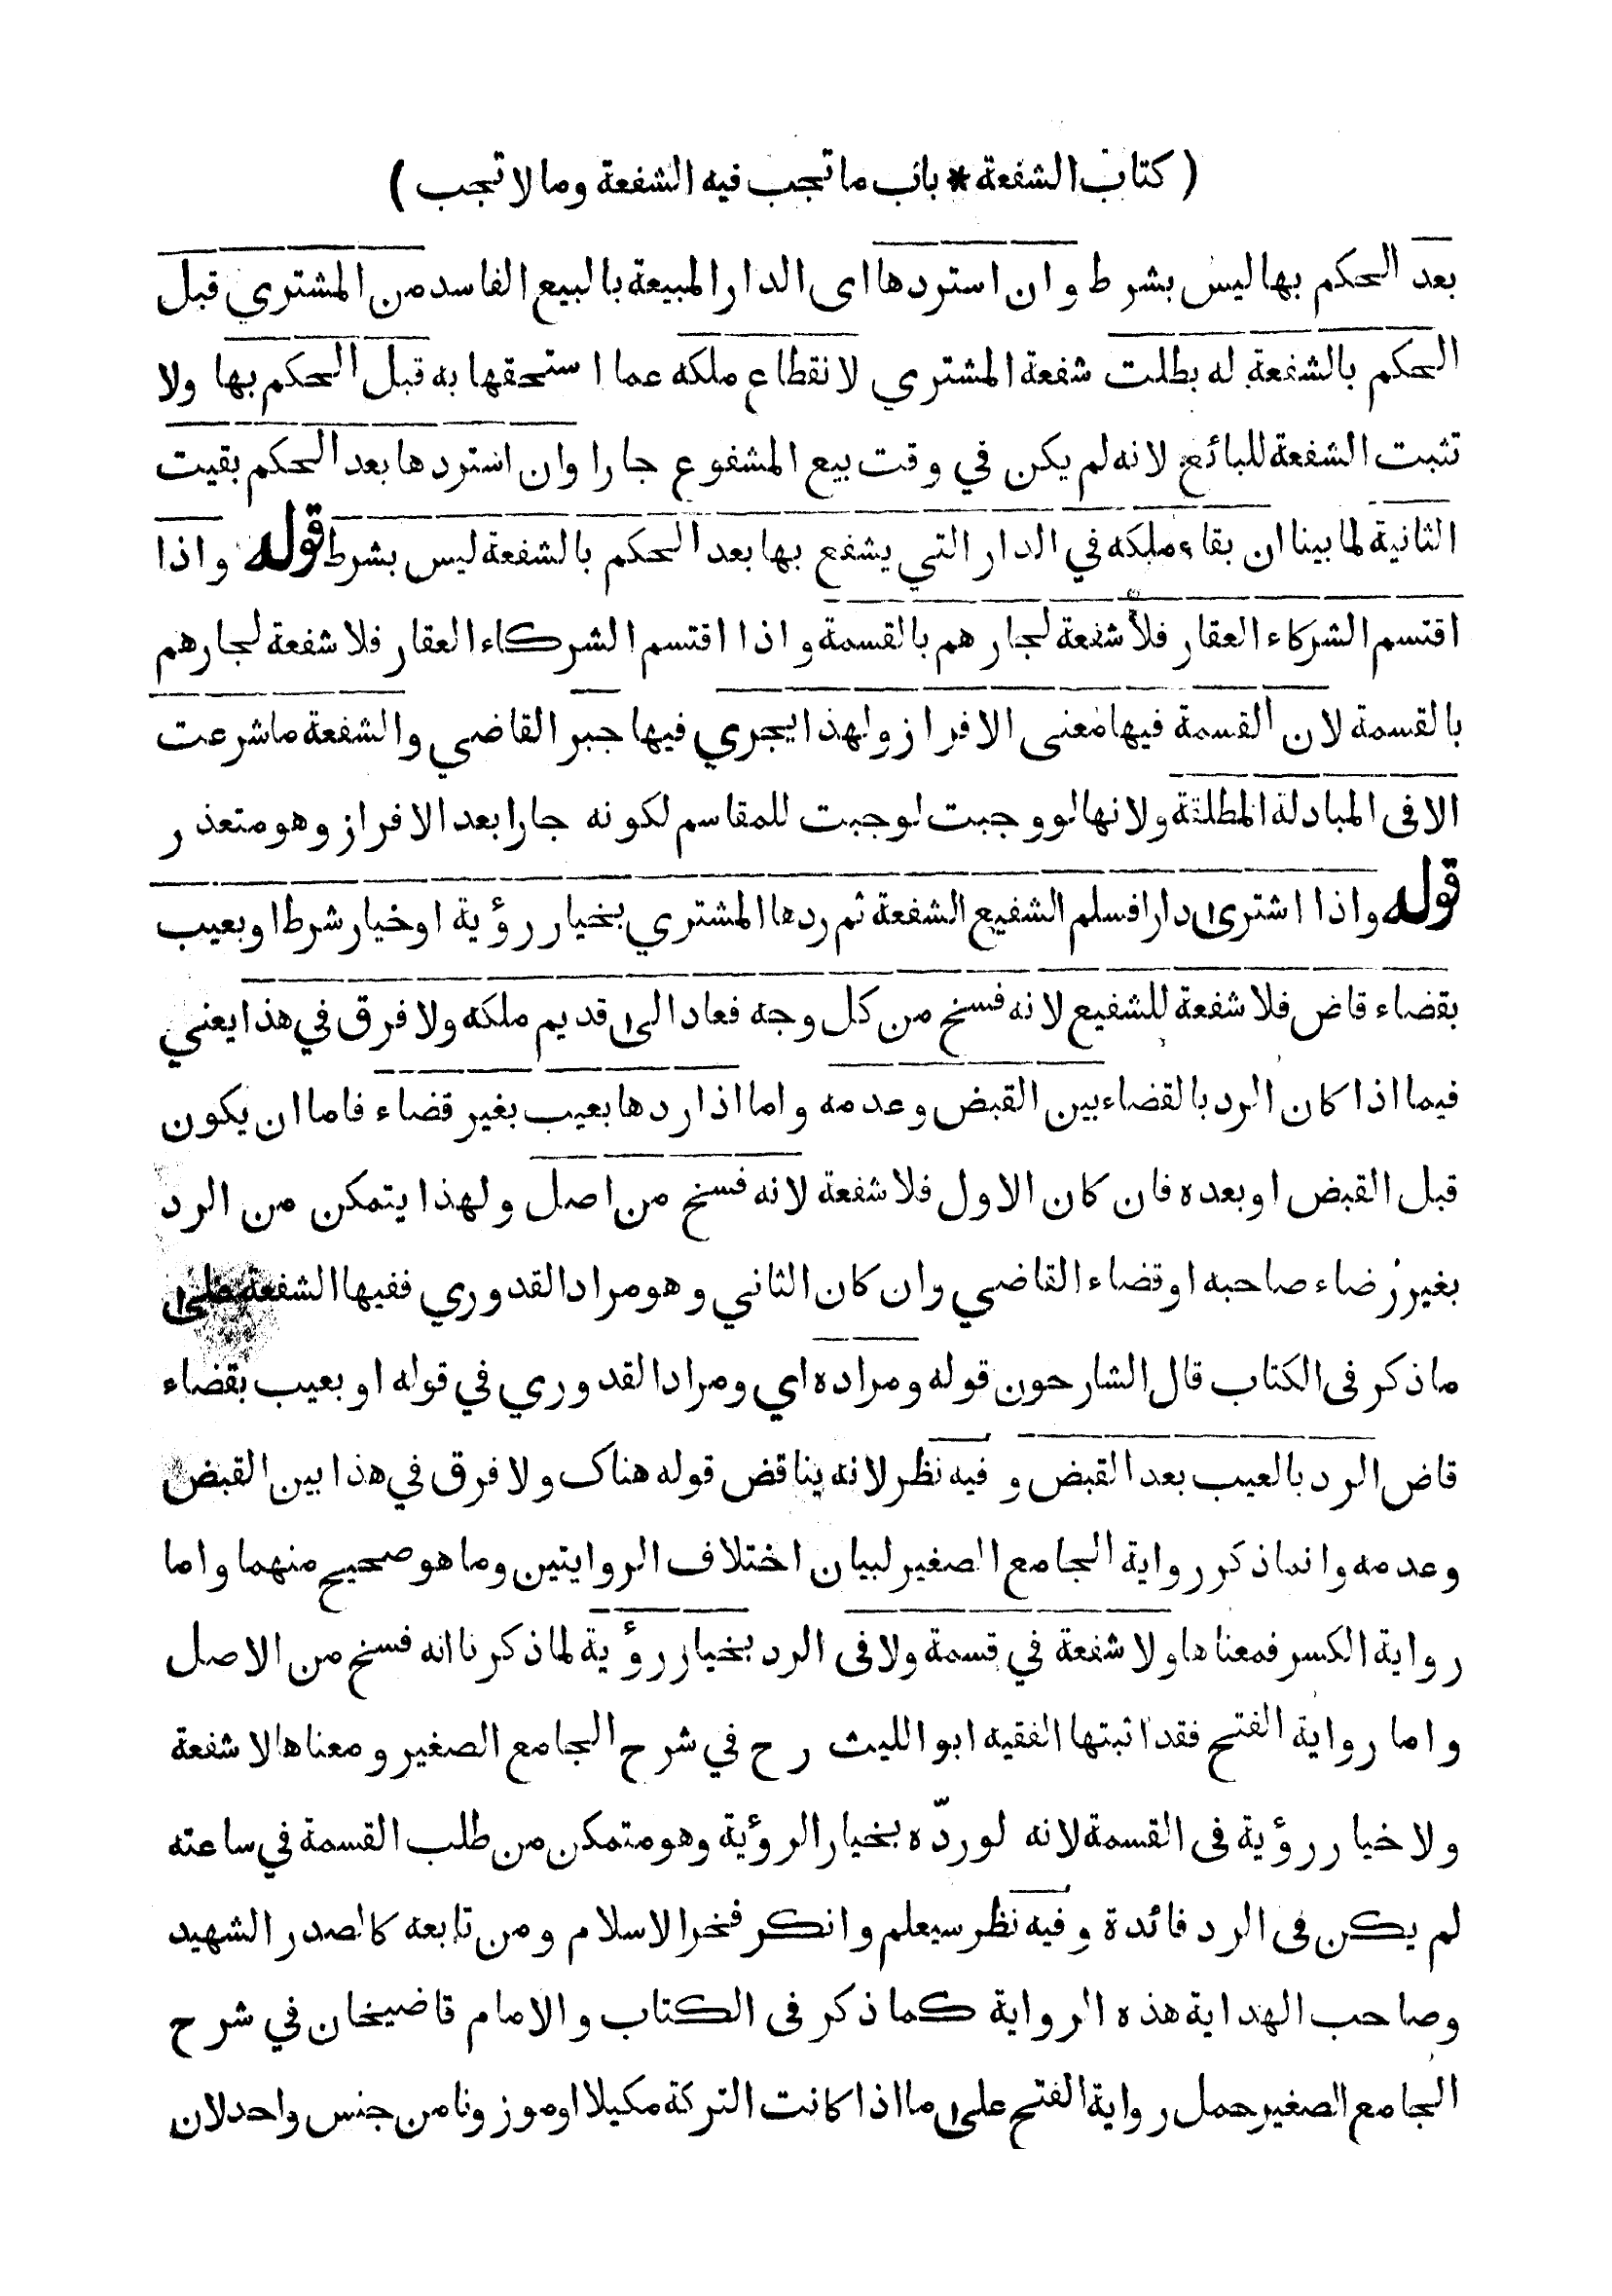 ( كتاب الشفعة * باب ما تجب فيه الشفعة وما لا تجب )
بعد الحكم بها ليس بشرط وان استردها اى الدار المبيعة بالبيع الفاسد من المشتري قبل
الحكم بالشفعة له بطلت شفعة المشتري لانقطاع ملكه عما استحقها به قبل الحكم بها ولا
تثبت الشفعة للبائع لانه لم يكن في وقت بيع المشفوع جارا وان استردها بعد الحكم بقيت
الثانية لما بينا ان بقاء ملكه في الدار التي يشفع بها بعد الحكم بالشفعة ليس بشرط قوله واذا
اقتسم الشركاء العقار فلا شفعة لجارهم بالقسمة واذا اقتسم الشركاء العقار فلا شفعة لجارهم
بالقسمة لان القسمة فيها معنى الافراز ولهذا يجري فيها جبر القاضي والشفعة ما شرعت
الا فى المبادلة المطلقة ولانها لو وجبت لوجبت للمقاسم لكونه جارا بعد الافراز وهو متعذر
قوله واذا اشترى دارا فسلم الشفيع الشفعة ثم ردها المشتري بخيار رؤية او خيار شرط او بعيب
بقضاء قاض فلا شفعة للشفيع لانه فسخ من كل وجه فعاد الى قديم ملكه ولا فرق في هذا يعني
فيما اذا كان الرد بالقضاء بين القبض وعدمه واما اذا ردها بعيب بغير قضاء فاما ان يكون
قبل القبض او بعده فان كان الاول فلا شفعة لانه فسخ من اصل ولهذا يتمكن من الرد
بغير رضاء صاحبه او قضاء القاضي وان كان الثاني وهو مراد القدوري ففيها الشفعة على
ما ذكر فى الكتاب قال الشارحون قوله ومراده اي ومراد القدوري في قوله او بعيب بقضاء
قاض الرد بالعيب بعد القبض و فيه نظر لانه يناقض قوله هناك ولا فرق في هذا بين القبض
وعدمه وانما ذكر رواية الجامع الصغير لبيان اختلاف الروايتين وما هو صحيح منهما واما
رواية الكسر فمعناها ولا شفعة في قسمة ولا فى الرد بخيار رؤية لما ذكرنا انه فسخ من الاصل
واما رواية الفتح فقد اثبتها الفقيه ابو الليث رح في شرح الجامع الصغير ومعناها لا شفعة
ولا خيار رؤية فى القسمة لانه لو ردّه بخيار الرؤية وهو متمكن من طلب القسمة في ساعته
لم يكن فى الرد فائدة وفيه نظر سيعلم وانكر فخر الاسلام ومن تابعه كالصدر الشهيد
وصاحب الهداية هذه الرواية كما ذكر فى الكتاب والامام قاضيخان في شرح
الجامع الصغير حمل رواية الفتح على ما اذا كانت التركة مكيلا او موزونا من جنس واحد لان